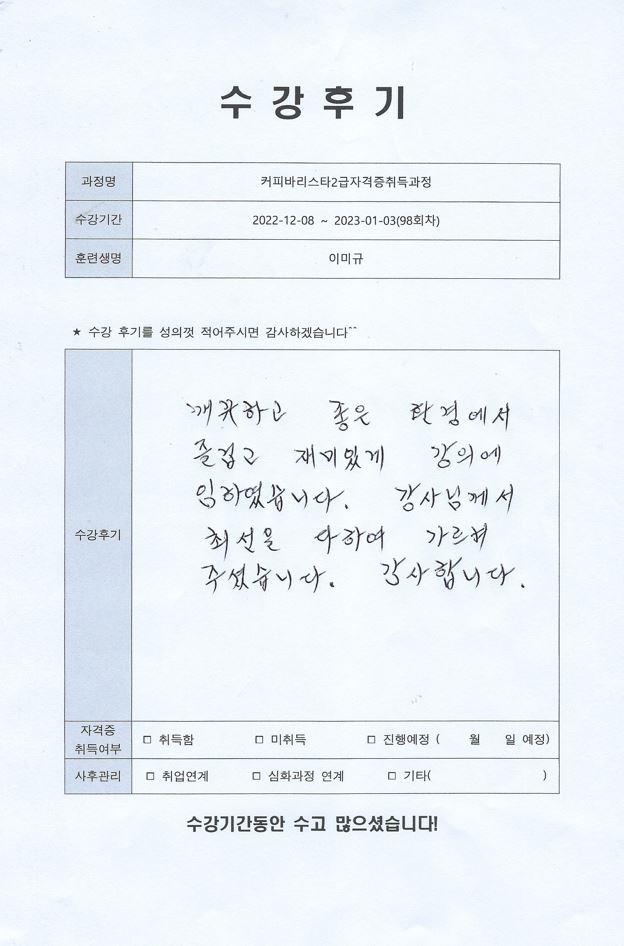 수 강 후 기
과정명 커피바리스타2급자격증취득과정
수강기간 2022-12-08 ~ 2023-01-03(98회차)
훈련생명 이미규
★ 수강 후기를 성의껏 적어주시면 감사하겠습니다^^
수강후기
깨끗하고 좋은 환경에서
즐겁고 재미있게 강의에
임하였습니다. 강사님께서
최선을 다하여 가르쳐
주셨습니다. 감사합니다.
자격증
취득여부
□ 취득함 □ 미취득 □ 진행예정 ( 월 일 예정)
사후관리 □ 취업연계 □ 심화과정 연계 □ 기타( )
수강기간동안 수고 많으셨습니다!